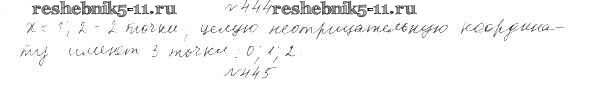 №444
reshebnik5-11.ru reshebnik5-11.ru
x = 1; 2 = 2 точки, целую неотрицательную координа-
ту имеют 3 точки: 0; 1; 2.
№445